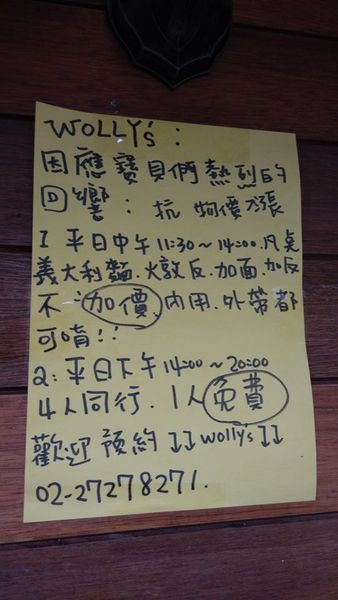 WOLLY's:
因應寶貝們熱烈的
回響:抗物價漲
1 平日中午11:30~14:00.凡桌
義大利麵.火敦反.加面.加反
不加價.內用.外帶都
可唷!!
2:平日下午14:00~20:00
4人同行.1人免費
歡迎預約↓↓wolly's↓↓
02-27278271.